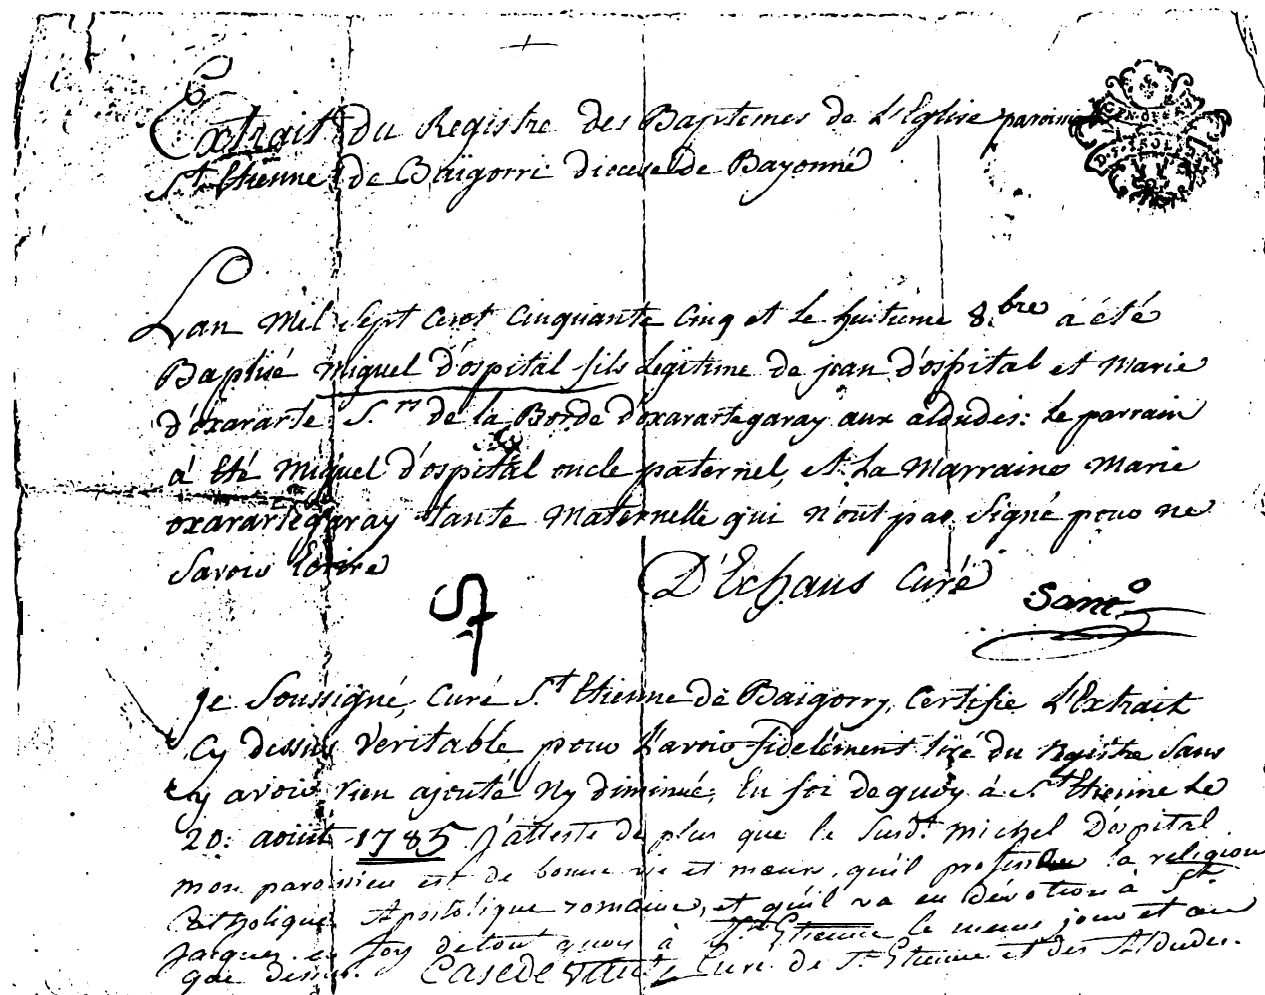 Extrait Du Registre des Baptemes de L'Eglise paroissi
St Etienne de Baïgorri diocese de Bayonne
Lan Mil Sept Cent Cinquante Cinq et le huitieme 8.bre á été
Baptisé Miguel D'ospital fils Legitime de jean D'ospital et Marie
d'oxararte S.rs de la Borde d'oxarartegaray aux aldudes: le parrain
á Eté Miguel D'ospital oncle paternel, et La Marraine Marie
oxarartegaray tante Maternelle qui n'ont pas Signé pour ne
Savoir Ecrire
D'Echaus Curé
Sanc.o
je Soussigné, Curé St Etienne de Baïgorry, Certifie L'Extrait
Cy dessus Veritable pour L'avoir fidelement tiré du Registre Sans
y avoir rien ajouté Ny diminué; En foi de quoy á St Etienne le
20: aout 1785 J'atteste de plus que le Susdt. Michel D'ospital
mon paroissien est de bonne vie et mœurs, qu'il professe la religion
Catholique Apostolique romaine, et qu'il va en dévotion à St.
Jacques en foy de tout quoy à St. Etienne le meme jour et an
que dessus. Curé de St. Etienne et des Aldudes.